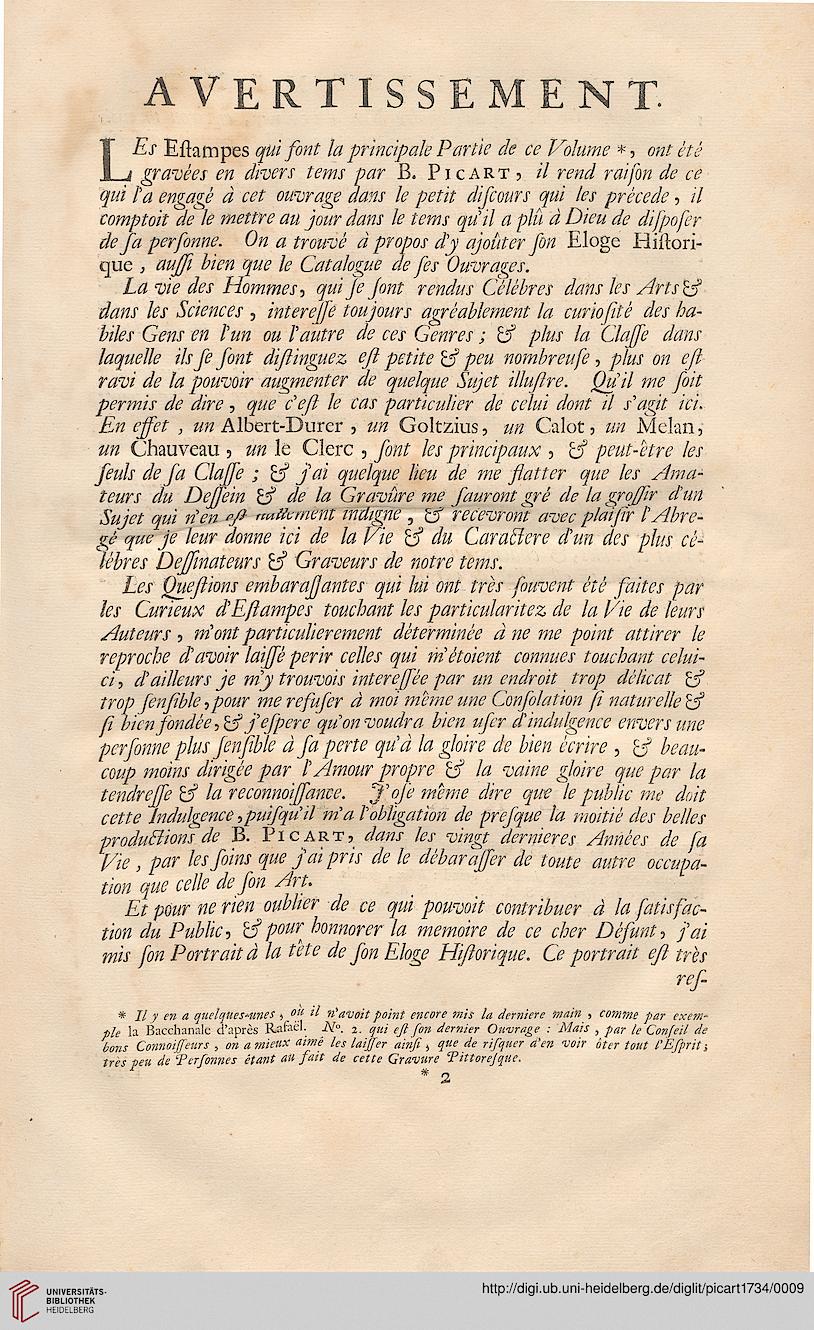 AVERTISSEMENT.
LEs Eſtampes qui ſont la principale Partie de ce Volume *, ont été
gravées en divers tems par B. PICART, il rend raiſon de ce
qui l'a engagé à cet ouvrage dans le petit diſcours qui les précede, il
comptoit de le mettre au jour dans le tems qu'il a plû à Dieu de diſpoſer
de ſa perſonne. On a trouvé à propos d'y ajoûter ſon Eloge Hiſtori-
que, auſſi bien que le Catalogue de ſes Ouvrages.
La vie des Hommes, qui ſe ſont rendus Célébres dans les Arts &
dans les Sciences, intereſſe toujours agréablement la curioſité des ha-
biles Gens en l'un ou l'autre de ces Genres; & plus la Claſſe dans
laquelle ils ſe ſont diſtinguez eſt petite & peu nombreuſe, plus on eſt
ravi de la pouvoir augmenter de quelque Sujet illuſtre. Qu'il me ſoit
permis de dire, que c'eſt le cas particulier de celui dont il s'agit ici.
En effet, un Albert-Durer, un Goltzius, un Calot, un Melan,
un Chauveau, un le Clerc, ſont les principaux, & peut-être les
ſeuls de ſa Claſſe; & j'ai quelque lieu de me flatter que les Ama-
teurs du Deſſein & de la Gravûre me ſauront gré de la groſſir d'un
Sujet qui n'en eſt nullement indigne, & recevront avec plaiſir l'Abre-
gé que je leur donne ici de la Vie & du Caractere d'un des plus cé-
lébres Deſſinateurs & Graveurs de notre tems.
Les Queſtions embaraſſantes qui lui ont très ſouvent été faites par
les Curieux d'Eſtampes touchant les particularitez de la Vie de leurs
Auteurs, m'ont particulierement déterminée à ne me point attirer le
reproche d'avoir laiſſé perir celles qui m'étoient connues touchant celui-
ci, d'ailleurs je m'y trouvois intereſſée par un endroit trop délicat &
trop ſenſible, pour me refuſer à moi même une Conſolation ſi naturelle &
ſi bien fondée, & j'eſpere qu'on voudra bien uſer d'indulgence envers une
perſonne plus ſenſible à ſa perte qu'à la gloire de bien écrire, & beau-
coup moins dirigée par l'Amour propre & la vaine gloire que par la
tendreſſe & la reconnoiſſance. J'oſe même dire que le public me doit
cette Indulgence, puiſqu'il m'a l'obligation de preſque la moitié des belles
productions de B. PICART, dans les vingt dernieres Années de ſa
Vie, par les ſoins que j'ai pris de le débaraſſer de toute autre occupa-
tion que celle de ſon Art.
Et pour ne rien oublier de ce qui pouvoit contribuer à la ſatisfac-
tion du Public, & pour honnorer la memoire de ce cher Défunt, j'ai
mis ſon Portrait à la tête de ſon Eloge Hiſtorique. Ce portrait eſt très
reſ-
* Il y en a quelques-unes, où il n'avoit point encore mis la derniere main, comme par exem-
ple la Bacchanale d'après Rafaël. N°. 2. qui eſt ſon dernier Ouvrage: Mais, par le Conſeil de
bons Connoiſſeurs, on a mieux aimé les laiſſer ainſi, que de riſquer d'en voir ôter tout l'Eſprit;
très peu de Perſonnes étant au fait de cette Gravure Pittoreſque.
* 2
UNIVERSITÄTS-
BIBLIOTHEK
HEIDELBERG
http://digi.ub.uni-heidelberg.de/diglit/picart1734/0009